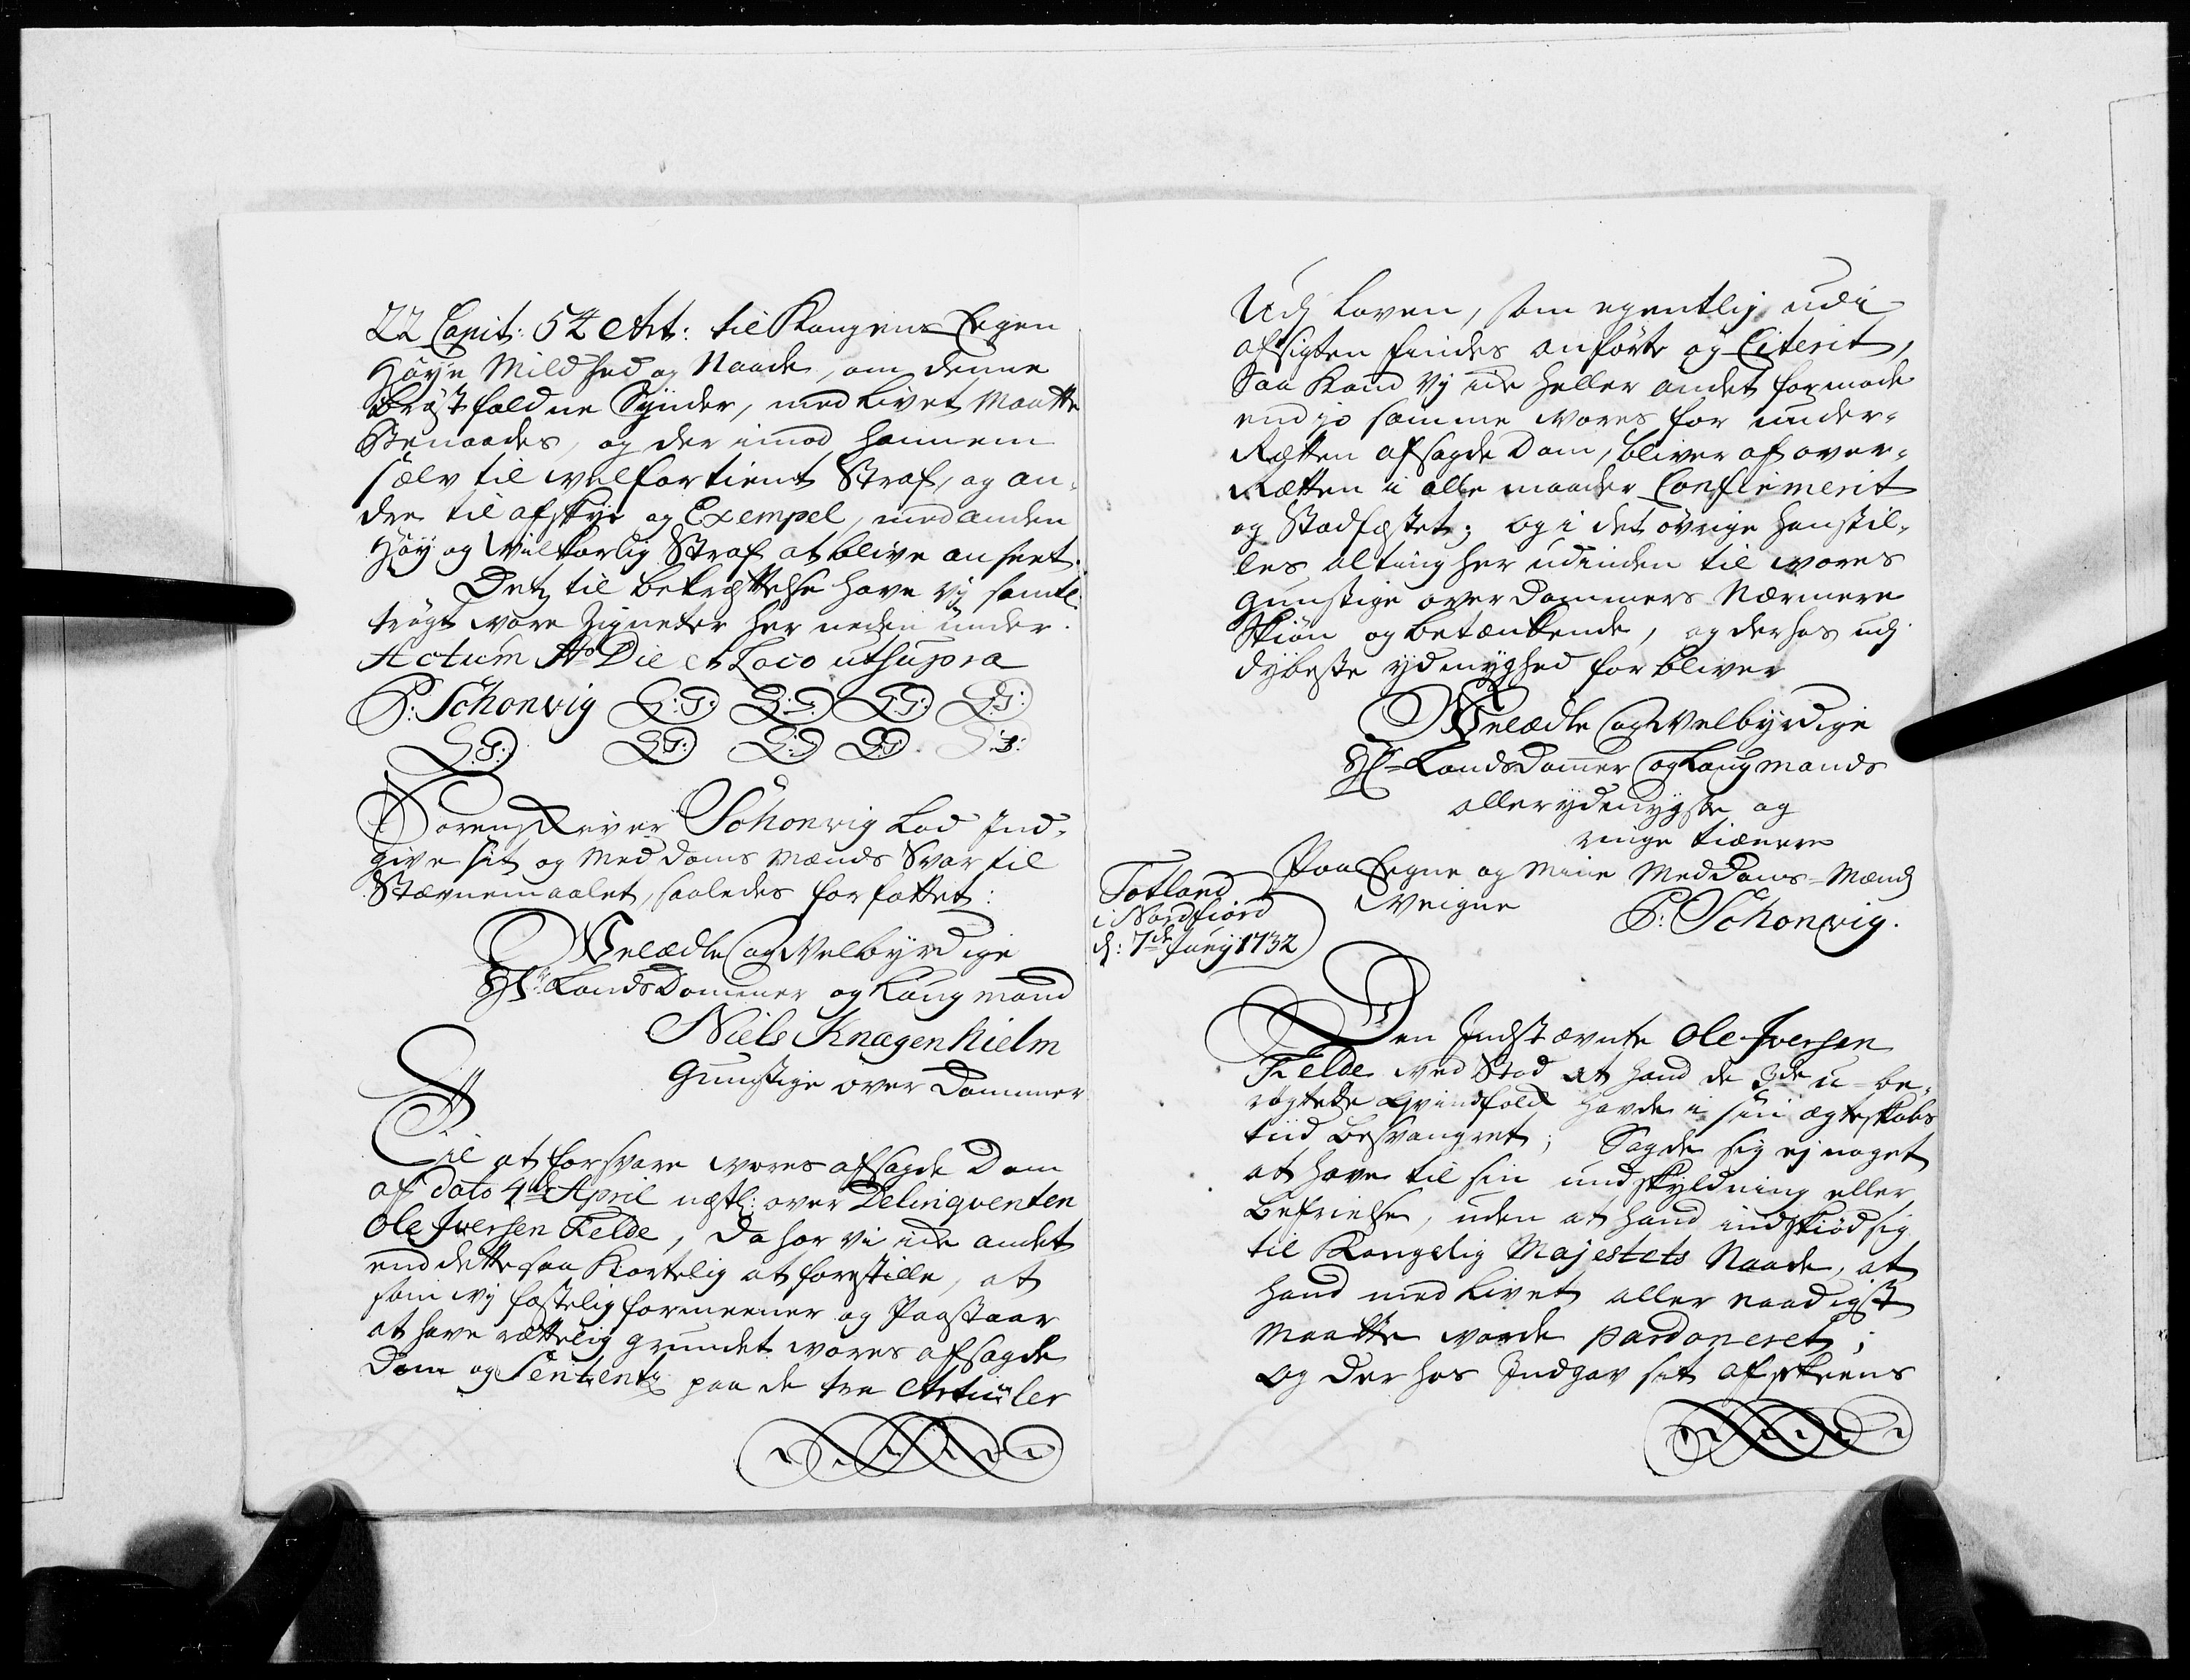 22 Capit: 52 Art: til Kongens Eegen
Høye Mildhed og Naade, om denne
Brøstfældne Synder, med Livet Maatte
Benaades, og der imod hannem
sælv til velfortient Straf, og an-
dre til afskye og Exempel, med anden
Høy og Vilkorlig Straf at blive anseet.
Detz til bekræftelse have vj samtl:
trøgt vore Zigneter her neden under.
Actum Ao Die et Loco ut supra
P: Schonvig L:S: L:S: L:S: L:S:
L:S: L:S: L:S: L:S: L:S:
Sorenskriver Schonvig Lod Ind-
give sit og Meddoms Mænds Svar til
Stævnemaalet, saaledes forfattet:
Velædle og Velbyrdige
Hr: LandsDommer og Laugmand
Niels Knagenhielm
Gunstige over Dommer
Til at forsvare vores afsagde Dom
af dato 4de April næstl: over Delinqventen
Ole Iversen Felde, da har vi icke andet
end dette saa Kortelig at forestille, at
som vj fastelig formeener og Paastaar
at have rættelig grundet vores afsagde
Dom og Sententz paa de tre Articuler
Udj Loven, som egentlig udi
afsigten findes anførte og Citerit,
Saa Kand vj icke heller andet formode
end jo samme vores for under-
Rætten afsagde Dom, bliver af over-
Rætten i alle maader Confirmerit
og Stadfæstet; og i det øvrige henstil-
les alting her udinden til vores
gunstige over Dommers Nærmere
Skiøn og betænkende, og derhos udj
dybeste ydmyghed forbliver
Velædle og Velbyrdige
Hr: LandsDommer og Laugmands
allerydmygste og
ringe tiænere
Paa Eegne og Mine MedDoms-Mænds
Veigne
P: Schonvig.
Totland
i Nordfiord
d: 7de Junij 1732
Den Indstævnte Ole Iversen
Felde ved Stod at hand de 3de u-be-
røgtede qvindfolk havde i sin ægteskabs
tiid besvangret; Sagde sig ej noget
at have til sin undskyldning eller
Befrielse, uden at hand indskiød sig
til Kongelig Majestets Naade, at
hand med Livet aller naadigst
Maatte vorde pardoneret;
og der hos Indgav sit afskeens